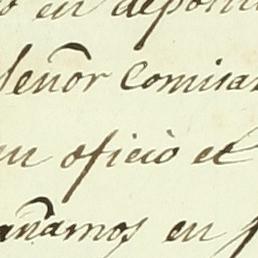 o en deposit
Señor Comisar
en oficio el
añamos en p